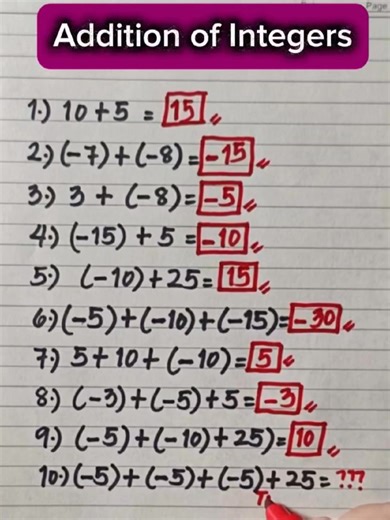 Page
Addition of Integers
1.) 10 + 5 = 15
2.) (-7) + (-8) = -15
3.) 3 + (-8) = -5
4.) (-15) + 5 = -10
5.) (-10) + 25 = 15
6.) (-5) + (-10) + (-15) = -30
7.) 5 + 10 + (-10) = 5
8.) (-3) + (-5) + 5 = -3
9.) (-5) + (-10) + 25) = 10
10.) (-5) + (-5) + (-5) + 25 = ???